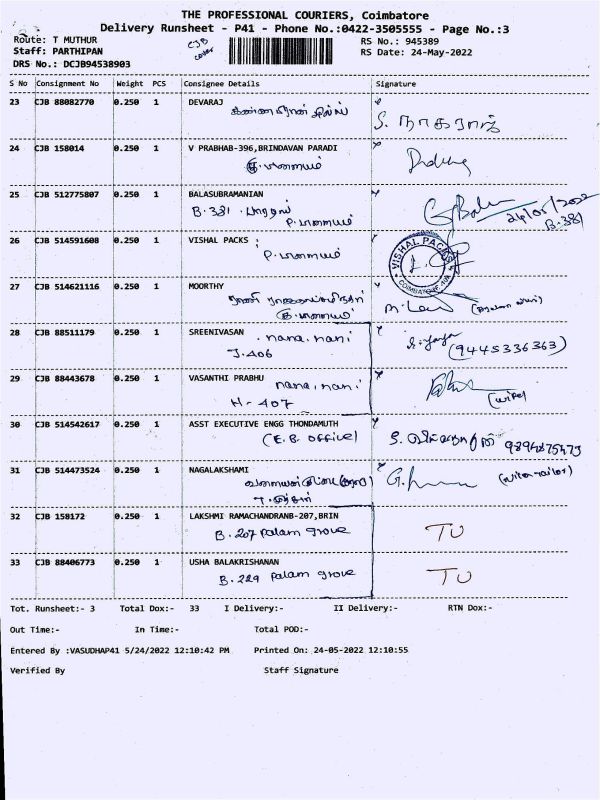 THE PROFESSIONAL COURIERS, Coimbatore
Delivery Runsheet - P41 - Phone No.:0422-3505555 - Page No.:3
Route: T MUTHUR
RS No.: 945389
Staff: PARTHIPAN
CJB
cover
RS Date: 24-May-2022
DRS No.: DCJB94538903
S No Consignment No Weight PCS Consignee Details Signature
23 CJB 88082770 0.250 1 DEVARAJ
S. நாகராஜ்
24 CJB 158014 0.250 1 V PRABHAB-396,BRINDAVAN PARADI
25 CJB 512775807 0.250 1 BALASUBRAMANIAN
B.381
24/05/2022
B.381
26 CJB 514591608 0.250 1 VISHAL PACKS
VISHAL PACKS
27 CJB 514621116 0.250 1 MOORTHY
28 CJB 88511179 0.250 1 SREENIVASAN
nana.nani
J.406
(9445336363)
29 CJB 88443678 0.250 1 VASANTHI PRABHU
nana.nani
H-407
(wife)
30 CJB 514542617 0.250 1 ASST EXECUTIVE ENGG THONDAMUTH
(E.B. office)
31 CJB 514473524 0.250 1 NAGALAKSHAMI
32 CJB 158172 0.250 1 LAKSHMI RAMACHANDRANB-207,BRIN
B.207 Palam grove
TU
33 CJB 88406773 0.250 1 USHA BALAKRISHANAN
B.229 Palam grove
TU
Tot. Runsheet:- 3 Total Dox:- 33 I Delivery:- II Delivery:- RTN Dox:-
Out Time:- In Time:- Total POD:-
Entered By :VASUDHAP41 5/24/2022 12:10:42 PM Printed On: 24-05-2022 12:10:55
Verified By Staff Signature